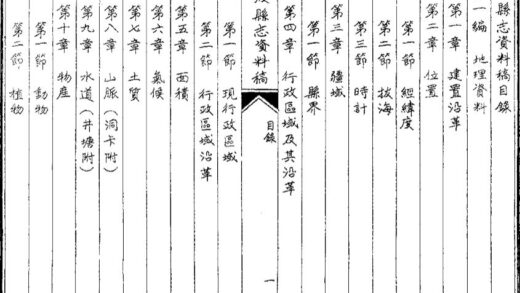 縣志資料稿目錄
一編 地理資料
第一章 建置沿革
第二章 位置
第一節 經緯度
第二節 拔海
第三節 時計
第三章 疆域
第一節 縣界
第四章 行政區域及其沿革
縣志資料稿
目錄
一
第一節 現行政區域
第二節 行政區域沿革
第五章 面積
第六章 氣候
第七章 土質
第八章 山脈(洞卡附)
第九章 水道(井塘附)
第十章 物產
第一節 動物
第二節 植物